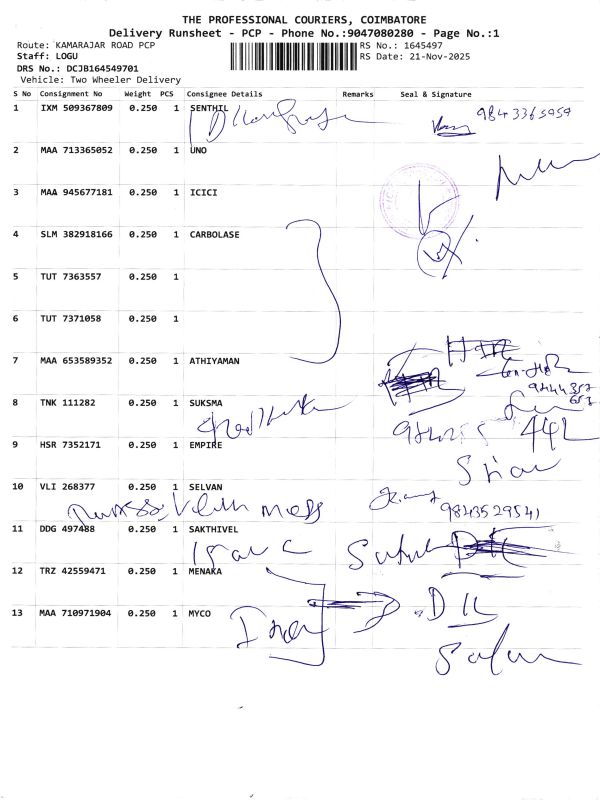 THE PROFESSIONAL COURIERS, COIMBATORE
Delivery Runsheet - PCP - Phone No.:9047080280 - Page No.:1
Route: KAMARAJAR ROAD PCP RS No.: 1645497
Staff: LOGU RS Date: 21-Nov-2025
DRS No.: DCJB164549701
Vehicle: Two Wheeler Delivery
S No Consignment No Weight PCS Consignee Details Remarks Seal & Signature
1 IXM 509367809 0.250 1 SENTHIL
9843365959
2 MAA 713365052 0.250 1 UNO
3 MAA 945677181 0.250 1 ICICI
4 SLM 382918166 0.250 1 CARBOLASE
5 TUT 7363557 0.250 1
6 TUT 7371058 0.250 1
7 MAA 653589352 0.250 1 ATHIYAMAN
8 TNK 111282 0.250 1 SUKSMA
442
9 HSR 7352171 0.250 1 EMPIRE
10 VLI 268377 0.250 1 SELVAN
9843529541
11 DDG 497488 0.250 1 SAKTHIVEL
12 TRZ 42559471 0.250 1 MENAKA
13 MAA 710971904 0.250 1 MYCO